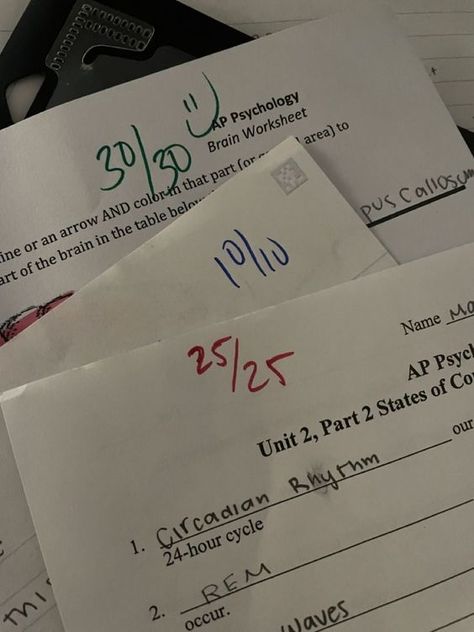 30/30
AP Psychology
Brain Worksheet
line or an arrow AND color in that part (or area) to
art of the brain in the table below
pus Callosum
10/10
25/25
Name Ma
AP Psych
Unit 2, Part 2 States of Co
1. Circadian Rhythm our
24-hour cycle
2. REM
occur.
Waves
this